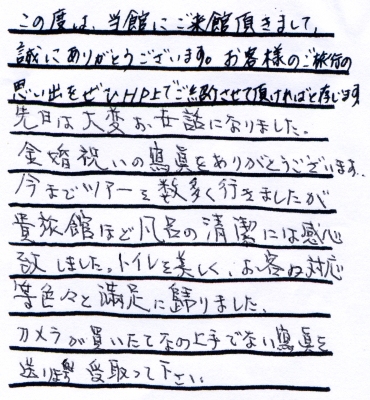 この度は、当館にご来館頂きまして、
誠にありがとうございます。お客様のご旅行の
思い出をぜひHP上でご紹介させて頂ければと存じます
先日は大変お世話になりました。
金婚祝いの寫眞をありがとうございます。
今までツアーを数多く行きましたが
貴旅館ほど風呂の清潔には感心
致しました。トイレも美しく、お客 対応
等色々と滿足に歸りました、
カメラが買いたてなの上手でない寫眞を
送り 受取って下さい。